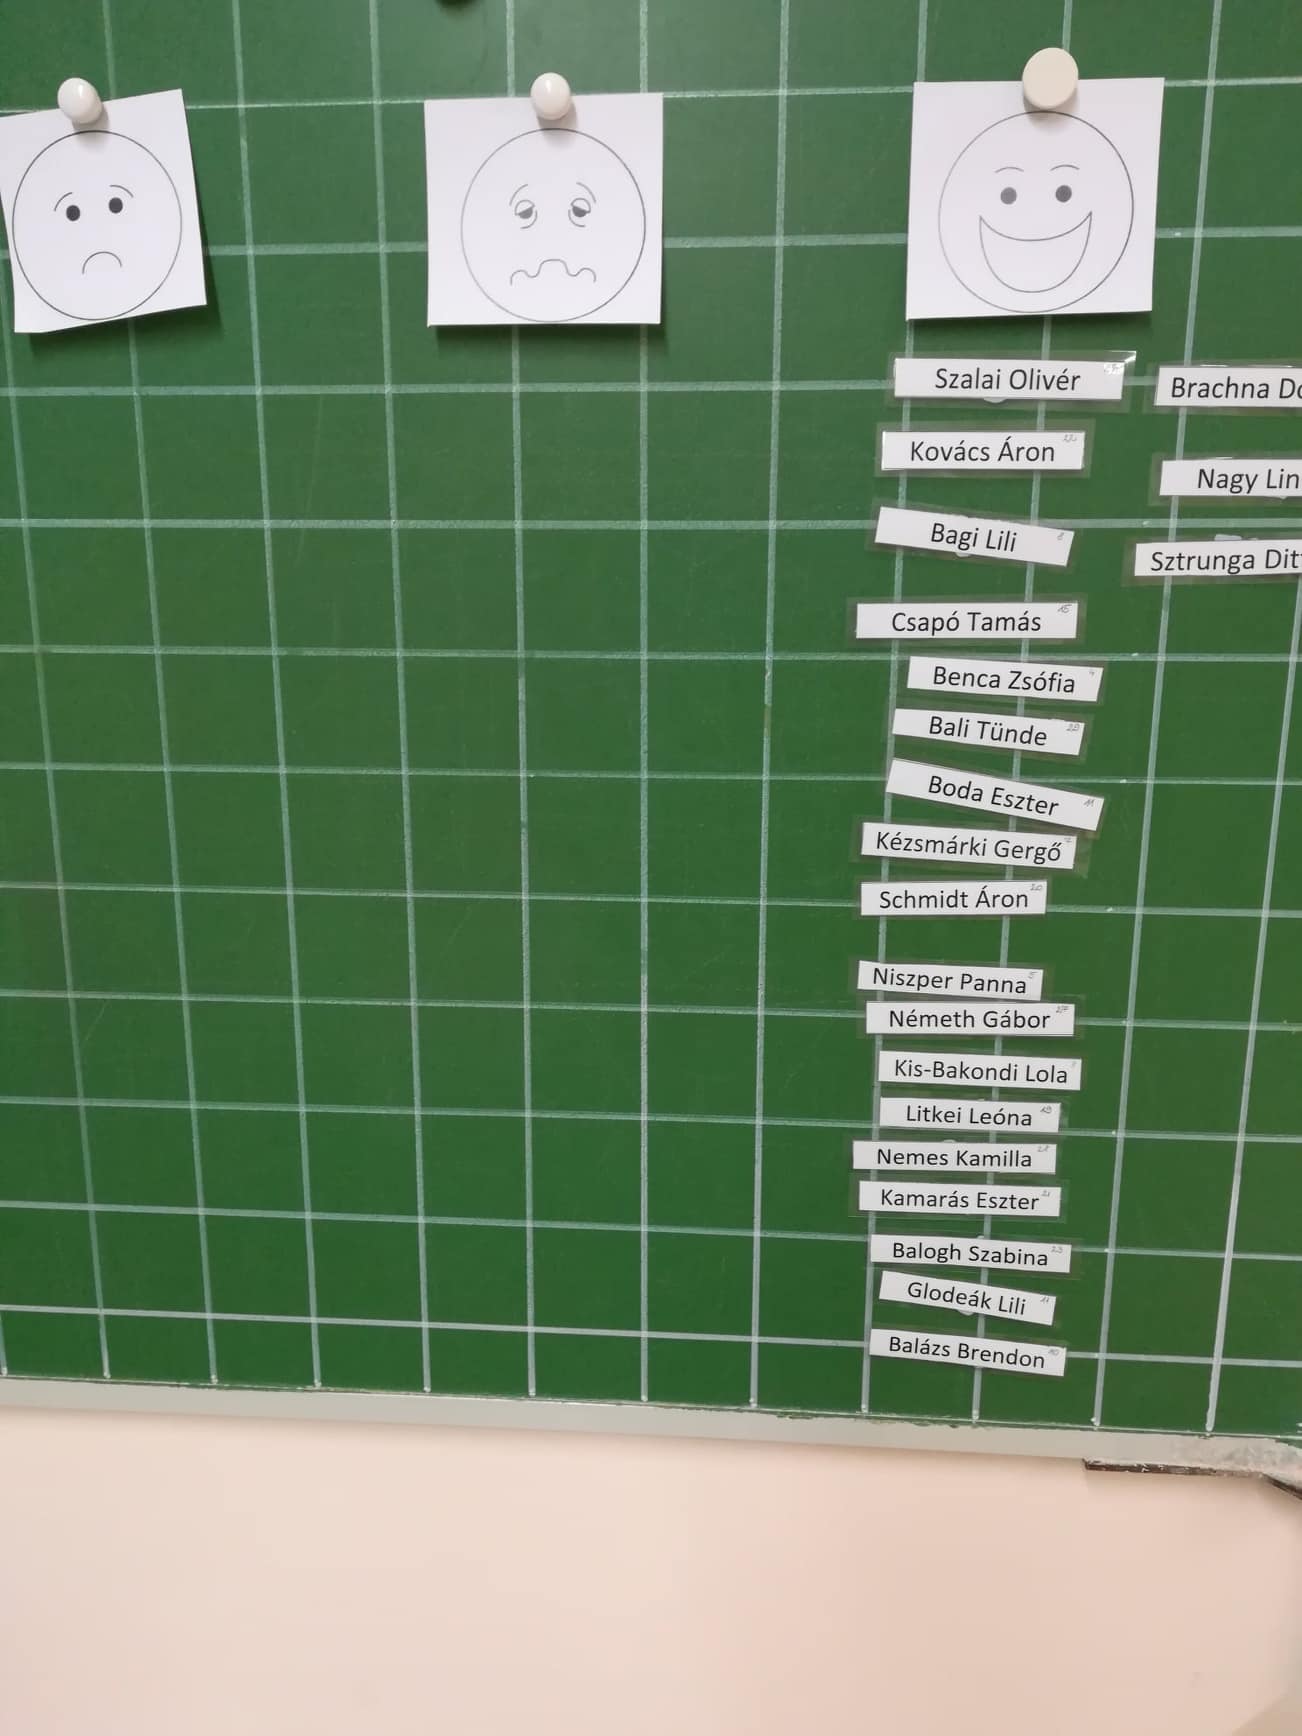 Szalai Olivér
Kovács Áron
Bagi Lili 8
Csapó Tamás 15
Benca Zsófia
Bali Tünde 29
Boda Eszter 11
Kézsmárki Gergő
Schmidt Áron 20
Niszper Panna 5
Németh Gábor 27
Kis-Bakondi Lola
Litkei Leóna 19
Nemes Kamilla
Kamarás Eszter 21
Balogh Szabina 23
Glodeák Lili
Balázs Brendon 10
Brachna
Nagy
Sztrunga